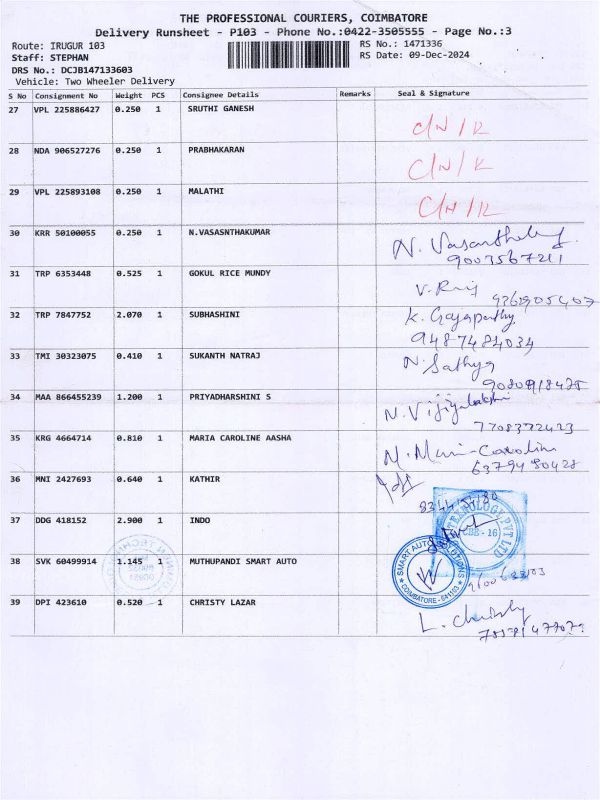 THE PROFESSIONAL COURIERS, COIMBATORE
Delivery Runsheet - P103 - Phone No.:0422-3505555 - Page No.:3
Route: IRUGUR 103
RS No.: 1471336
Staff: STEPHAN
RS Date: 09-Dec-2024
DRS No.: DCJB147133603
Vehicle: Two Wheeler Delivery
S No Consignment No Weight PCS Consignee Details Remarks Seal & Signature
27 VPL 225886427 0.250 1 SRUTHI GANESH
C/N/R
28 NDA 906527276 0.250 1 PRABHAKARAN
C/N/R
29 VPL 225893108 0.250 1 MALATHI
C/N/R
30 KRR 50100055 0.250 1 N.VASASNTHAKUMAR
N. 
9003567211
31 TRP 6353448 0.525 1 GOKUL RICE MUNDY
V. 
32 TRP 7847752 2.070 1 SUBHASHINI
K. Gajapathy
9487484034
33 TMI 30323075 0.410 1 SUKANTH NATRAJ
N. Sathya
34 MAA 866455239 1.200 1 PRIYADHARSHINI S
N. Vijiyalakshi
7708372423
35 KRG 4664714 0.810 1 MARIA CAROLINE AASHA
M. 
6379480428
36 MNI 2427693 0.640 1 KATHIR
37 DDG 418152 2.900 1 INDO
CBE - 16
38 SVK 60499914 1.145 1 MUTHUPANDI SMART AUTO
SMART AUTO SOLUTIONS
COIMBATORE - 641103
39 DPI 423610 0.520 1 CHRISTY LAZAR
L. Christy